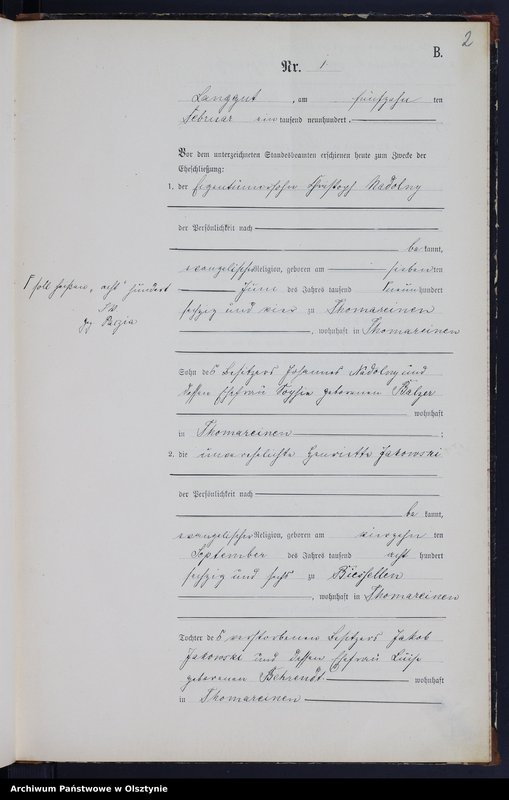 2
B.
Nr. 1
Langgut , am fünfzehn ten
Februar ein tausend neunhundert .
Vor dem unterzeichneten Standesbeamten erschienen heute zum Zwecke der
Eheschließung:
1. der Eigentümersohn Christoph Nadolny
der Persönlichkeit nach
be kannt,
evangelischer Religion, geboren am sieben ten
Juni des Jahres tausend neunhundert
sechzig und vier zu Thomareinen
, wohnhaft in Thomareinen
Γ soll heißen, acht hundert
Sohn des Besitzers Johannes Nadolny und
dessen Ehefrau Sophie geborenen Balzer
wohnhaft
in Thomareinen ;
2. die unverehelichte Henriette Jakowski
der Persönlichkeit nach
be kannt,
evangelischer Religion, geboren am vierzehn ten
September des Jahres tausend acht hundert
sechzig und sechs zu Biessellen
, wohnhaft in Thomareinen
Tochter des verstorbenen Besitzers Jakob
Jakowski und dessen Ehefrau Luise
geborenen Behrendt wohnhaft
in Thomareinen
Archiwum Państwowe w Olsztynie